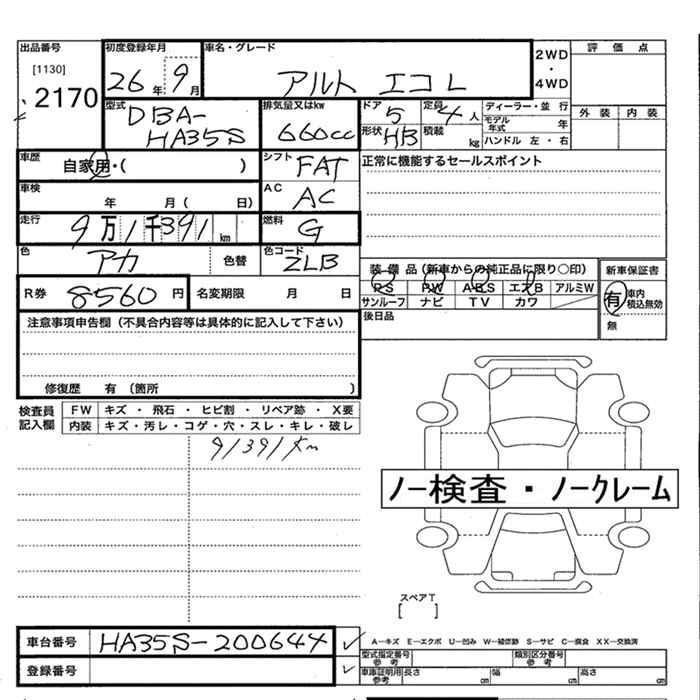 出品番号
[1130]
2170
初度登録年月
26年 9月
車名・グレード
アルト エコL
2WD
・
4WD
評価点
外装 内装
型式
DBA-
HA35S
排気量又はkw
660cc
ドア 5
定員 4人
形状 HB
積載 kg
ディーラー・並行
モデル年式 年
ハンドル 左・右
車歴 自家用・( )
シフト FAT
正常に機能するセールスポイント
車検 年 月( 日)
AC AC
走行 9万1千391km
燃料 G
色 アカ 色替
色コード ZLB
装備品(新車からの純正品に限り○印)
PS PW ABS エアB アルミW
サンルーフ ナビ TV カワ
新車保証書
有 車内積込無効
無
R券 8560円
名変期限 月 日
後日品
注意事項申告欄(不具合内容等は具体的に記入して下さい)
修復歴 有 〔箇所 〕
検査員記入欄
FW キズ・飛石・ヒビ割・リペア跡・X要
内装 キズ・汚レ・コゲ・穴・スレ・キレ・破レ
91391km
ノー検査・ノークレーム
スペアT
[ ]
車台番号 HA35S-200644
A-キズ E-エクボ U-凹み W-補修跡 S-サビ C-腐食 XX-交換済
登録番号
型式指定番号 参考
類別区分番号 参考
車庫証明用 参考 長さ cm 幅 cm 高さ cm